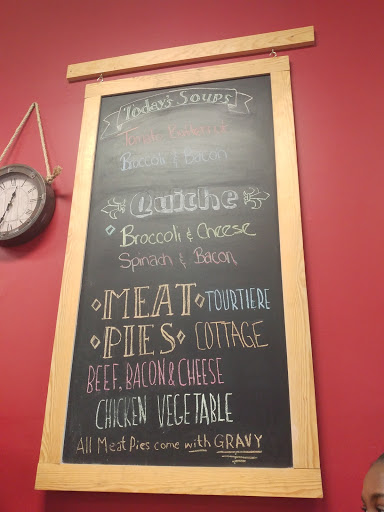 Today's Soups
Broccoli & Bacon
Quiche
Broccoli & Cheese
Spinach & Bacon
MEAT TOURTIERE
PIES COTTAGE
BEEF, BACON & CHEESE
CHICKEN VEGETABLE
All Meat Pies come with GRAVY